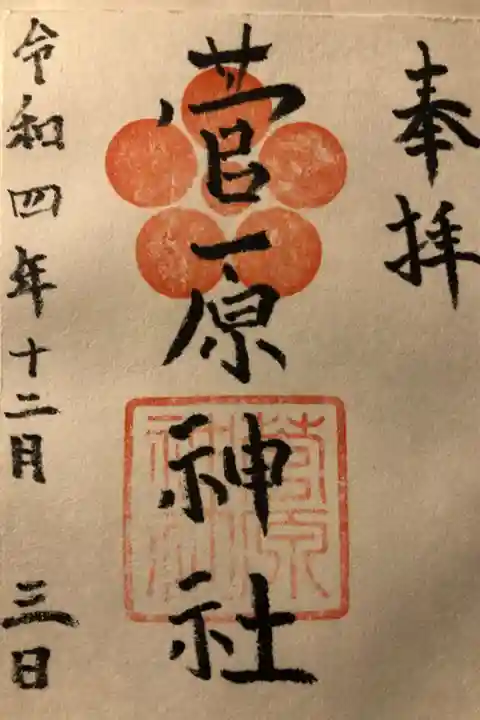 奉拝
菅原神社
菅原
神社
令和四年十二月三日